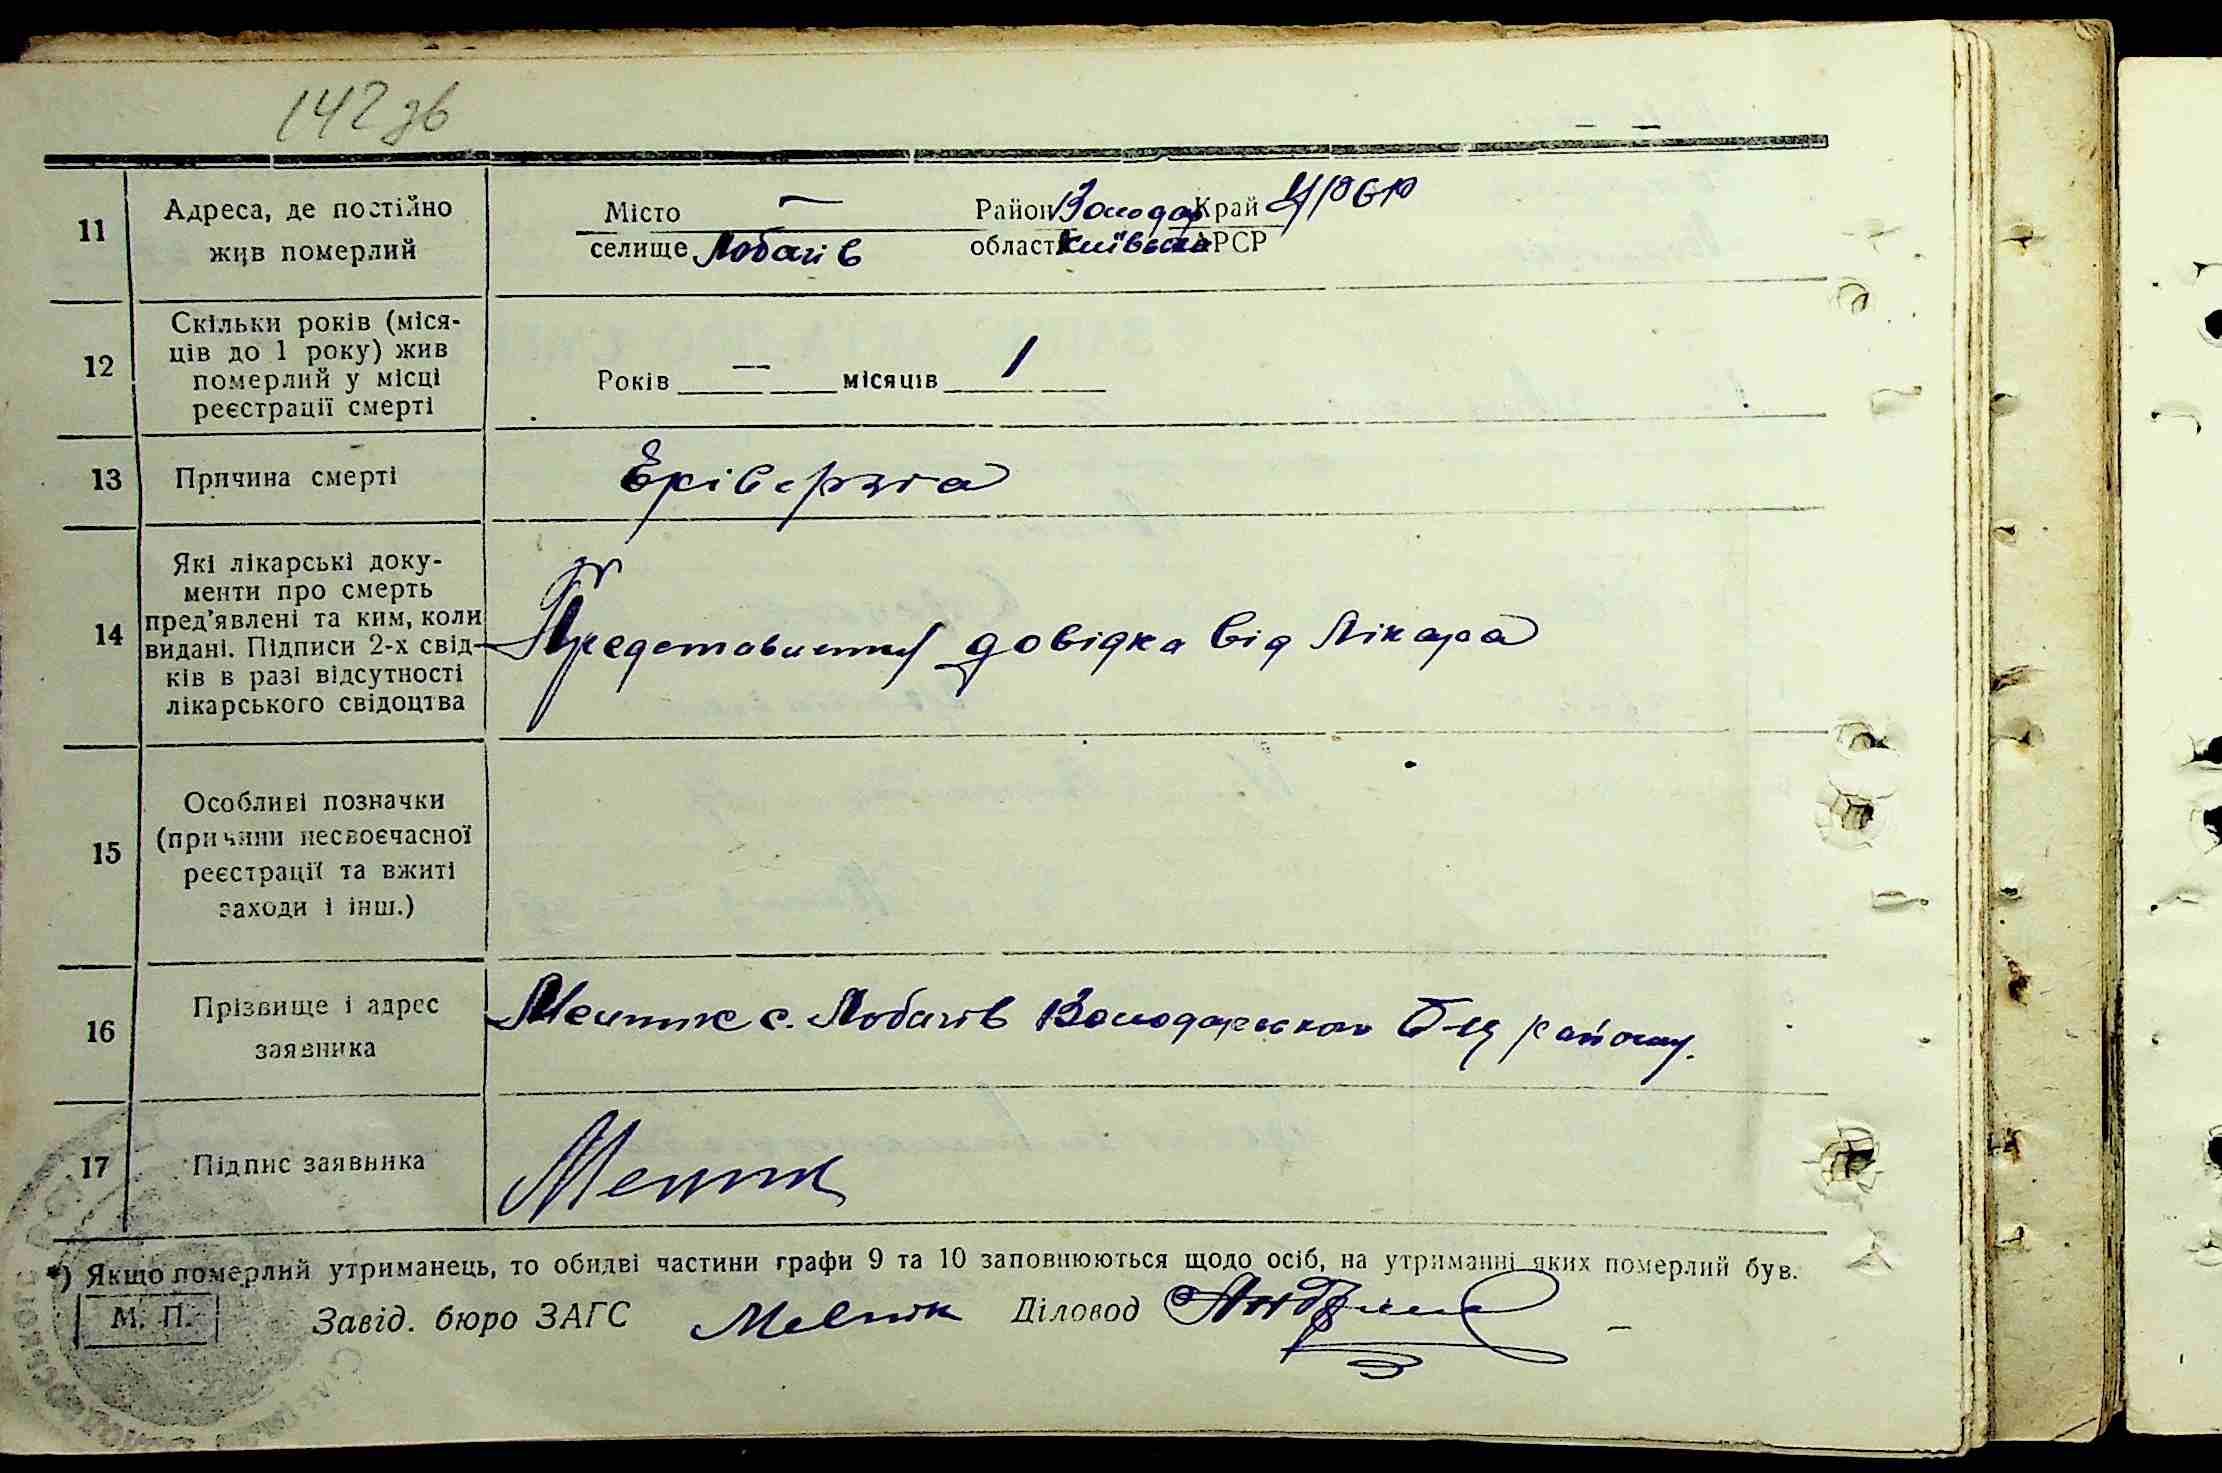 142 зв
11 Адреса, де постійно жив померлий
Місто — Район Володар Край УРСР
селище Лобачів область Київська АРСР
12 Скільки років (місяців до 1 року) жив померлий у місці реєстрації смерті
Років — місяців 1
13 Причина смерті
14 Які лікарські документи про смерть пред'явлені та ким, коли видані. Підписи 2-х свідків в разі відсутності лікарського свідоцтва
довідка від лікара
15 Особливі позначки (причини несвоєчасної реєстрації та вжиті заходи і інш.)
16 Прізвище і адрес заявника
с. Лобачів Володарського Б-Ц району.
17 Підпис заявника
*) Якщо померлий утриманець, то обидві частини графи 9 та 10 заповнюються щодо осіб, на утриманні яких померлий був.
М. П. Завід. бюро ЗАГС Мельник Діловод